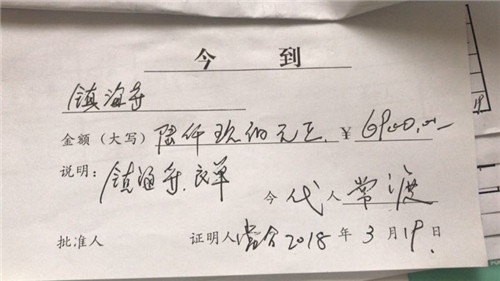 今 到
镇海寺
金额（大写）陆仟玖佰元正. ￥6900.00
说明：镇海寺.
今代人 常渡
批准人 证明人 2018年3月19日